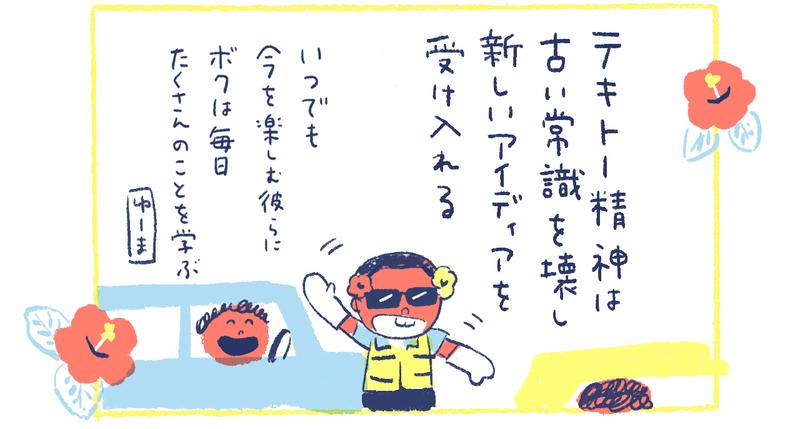 テキトー精神は
古い常識を壊し
新しいアイディアを
受け入れる
いつでも
今を楽しむ彼らに
ボクは毎日
たくさんのことを学ぶ
ゆーま